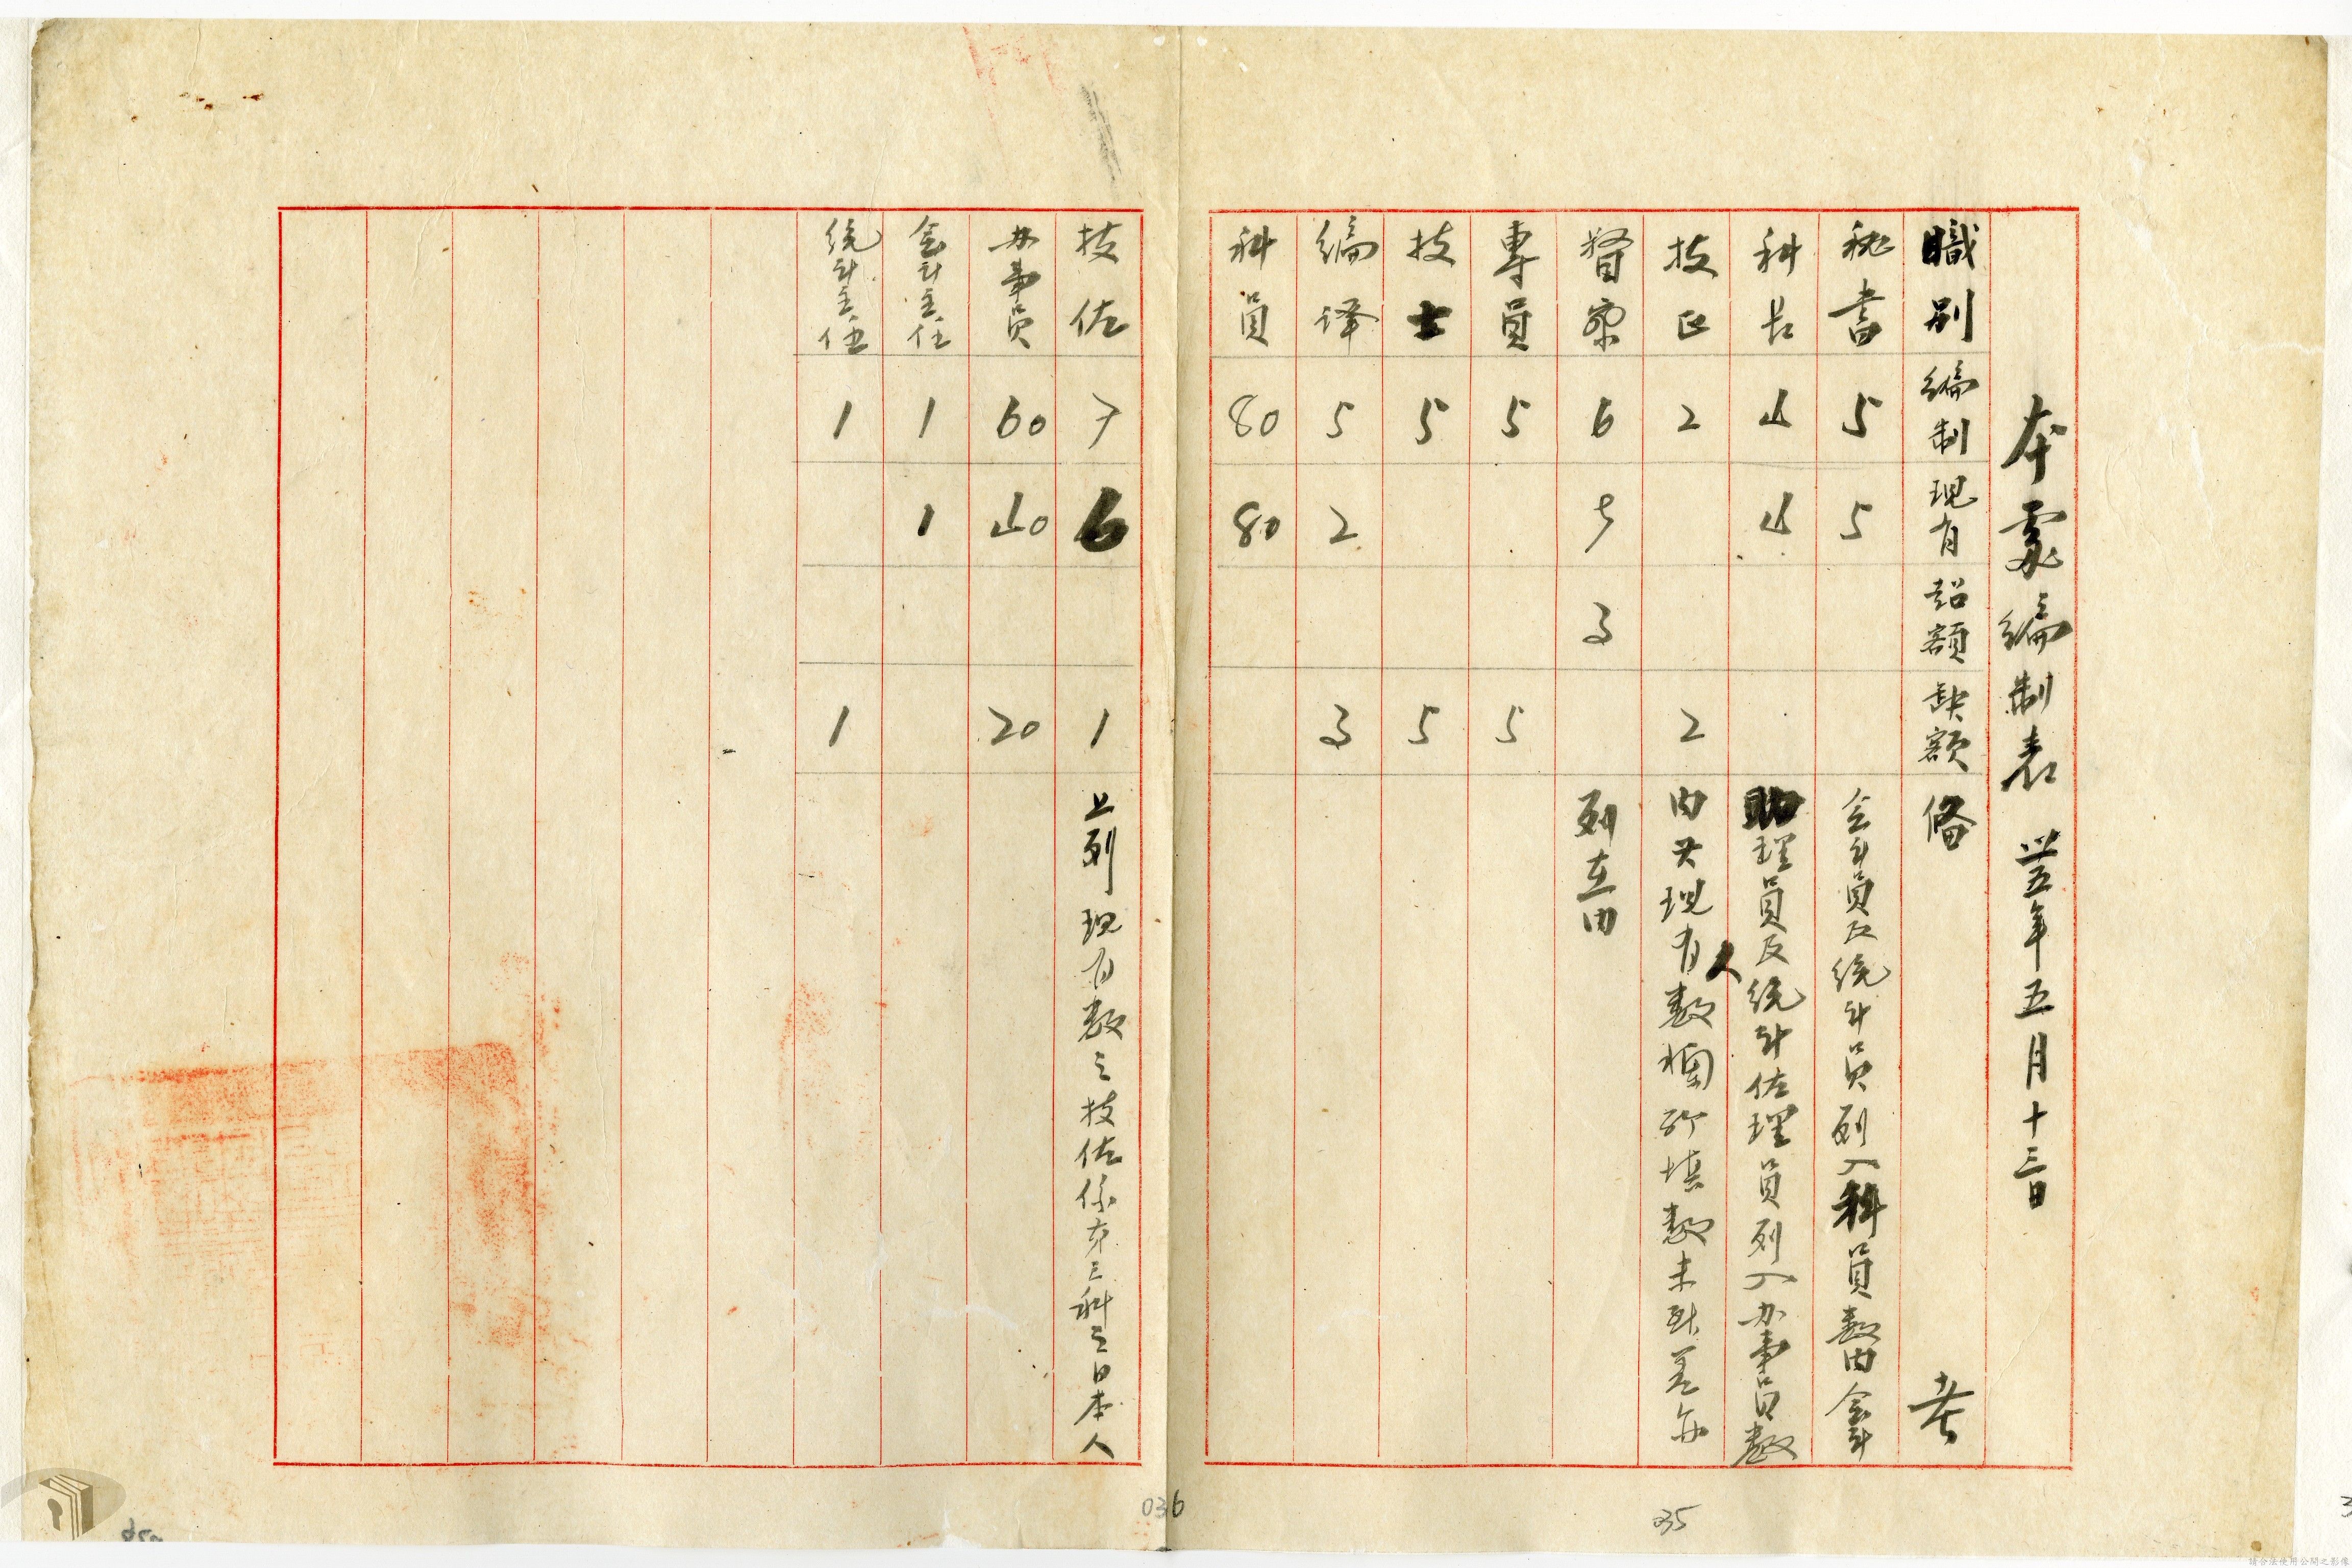 本處編制表 卅五年五月十三日
職別 編制 現有 超額 缺額 備考
秘書 5 5 会計員及統計員列入科員數內會計
科長 4 4 助理員及統計佐理員列入办事員數
技正 2 2 內又現有人數欄所填數未到差亦
督察 6 9 3 列在內
專員 5 5
技士 5 5
編译 5 2 3
科員 80 80
技佐 7 6 1 上列現有數之技佐係第三科之日本人
办事員 60 40 20
會計主任 1 1
統計主任 1 1
035
036